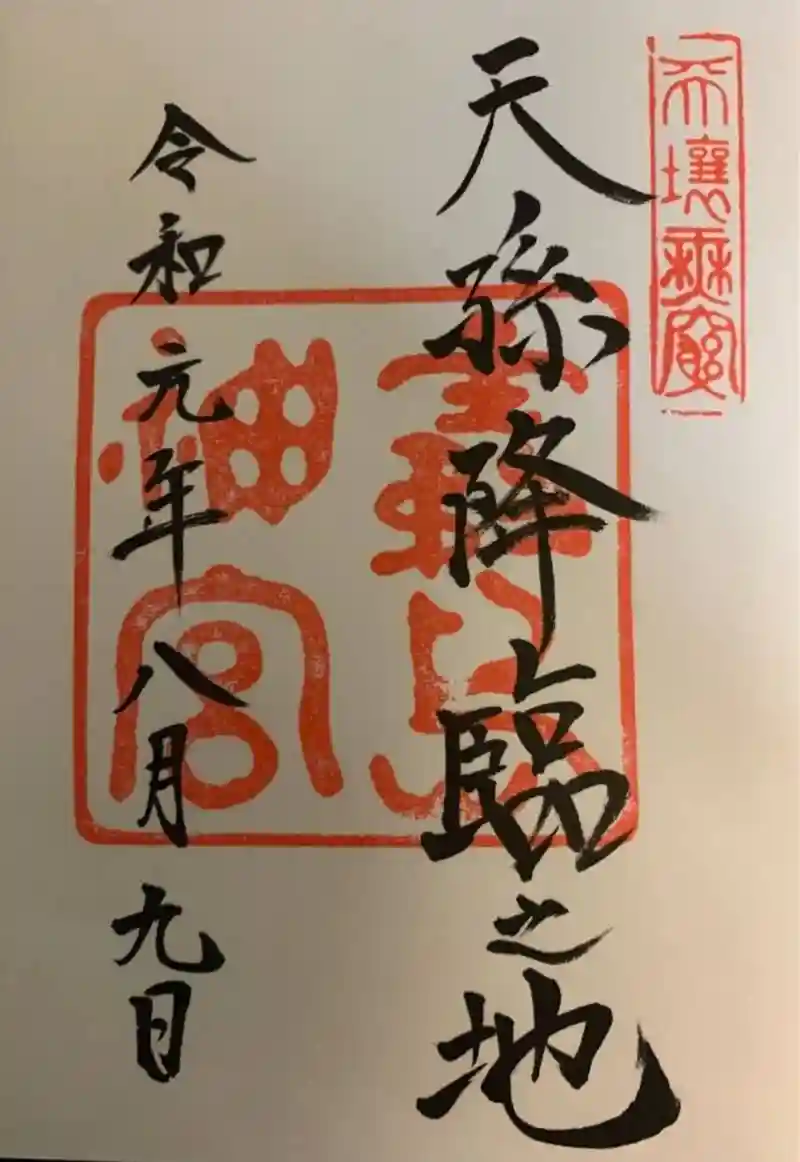 天壤無窮
天孫降臨之地
神宮
令和元年八月九日